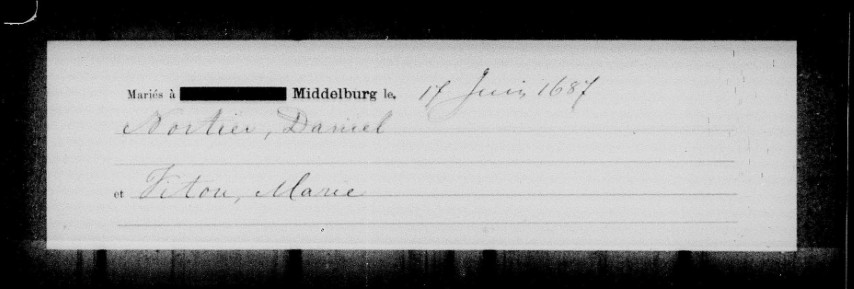 Mariés à Middelburg le, 17 Juin 1687
Nortier, Daniel
et Vitou, Marie